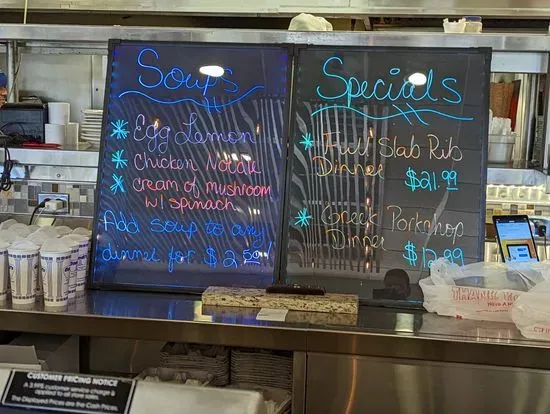 Soups
Egg Lemon
Chicken Noodle
Cream of mushroom
w/ spinach
Add soup to any
dinner for $2.50!
Specials
Full Slab Rib
Dinner
$21.99
Greek Porkchop
Dinner
$12.99
THANK
CUSTOMER PRICING NOTICE
A 3.99% customer service charge is
applied to all store sales.
The Displayed Prices are the Cash Prices.